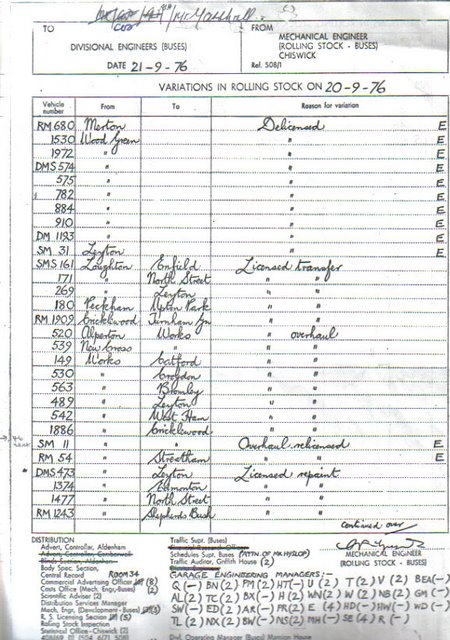 Mr Marshall
TO
FROM
DIVISIONAL ENGINEERS (BUSES)
MECHANICAL ENGINEER
(ROLLING STOCK - BUSES)
CHISWICK
DATE 21-9-76
Ref. 508/1
VARIATIONS IN ROLLING STOCK ON 20-9-76
Vehicle number From To Reason for variation
RM 680 Merton Delicensed E
1530 Wood Green " E
1972 " " E
DMS 574 " " E
575 " " E
782 " " E
884 " " E
910 " " E
DM 1123 " " E
SM 31 Leyton " E
SMS 161 Loughton Enfield Licensed transfer
171 " North Street " "
269 " Leyton " "
180 Peckham Upton Park " "
RM 1909 Cricklewood Turnham Gn " "
520 Alperton Works " overhaul
539 New Cross " " "
149 Works Catford " "
530 " Croydon " "
563 " Bromley " "
489 " Leyton " "
542 " West Ham " "
1886 " Cricklewood " "
SM 11 " " Overhaul relicensed E
RM 54 " Streatham " " E
DMS 473 " Leyton Licensed repaint
1374 " Edmonton " "
1477 " North Street " "
RM 1243 " Shepherds Bush " "
continued over
DISTRIBUTION
Advert. Controller, Aldenham
Body Spec. Section,
Central Record ROOM 34
Commercial Advertising Officer (8)
Costs Office (Mech. Engr.-Buses) (2)
Scientific Adviser (2)
Distribution Services Manager
Mach. Engr. (Development-Buses)
R. S. Licensing Section
Rolling Stock Inspection
Statistical Office - Chiswick (2)
Traffic Supr. (Buses)
Schedules Supt. Buses (ATTN. OF MR HYSLOP)
Traffic Auditor, Griffith House (2)
MECHANICAL ENGINEER
(ROLLING STOCK - BUSES)
GARAGE ENGINEERING MANAGERS:-
Q (-) BN (2) PM (2) HT (-) U (2) T (2) V (2) BEA (-)
AL (2) TC (2) BX (-) H (2) WN (2) W (2) NB (2) GM (-)
SW (-) ED (2) AR (-) PR (2) E (4) HD (-) HW (-) WD (-)
TL (2) NX (2) BW (-) NS (2) MH (-) SE (4) R (-)